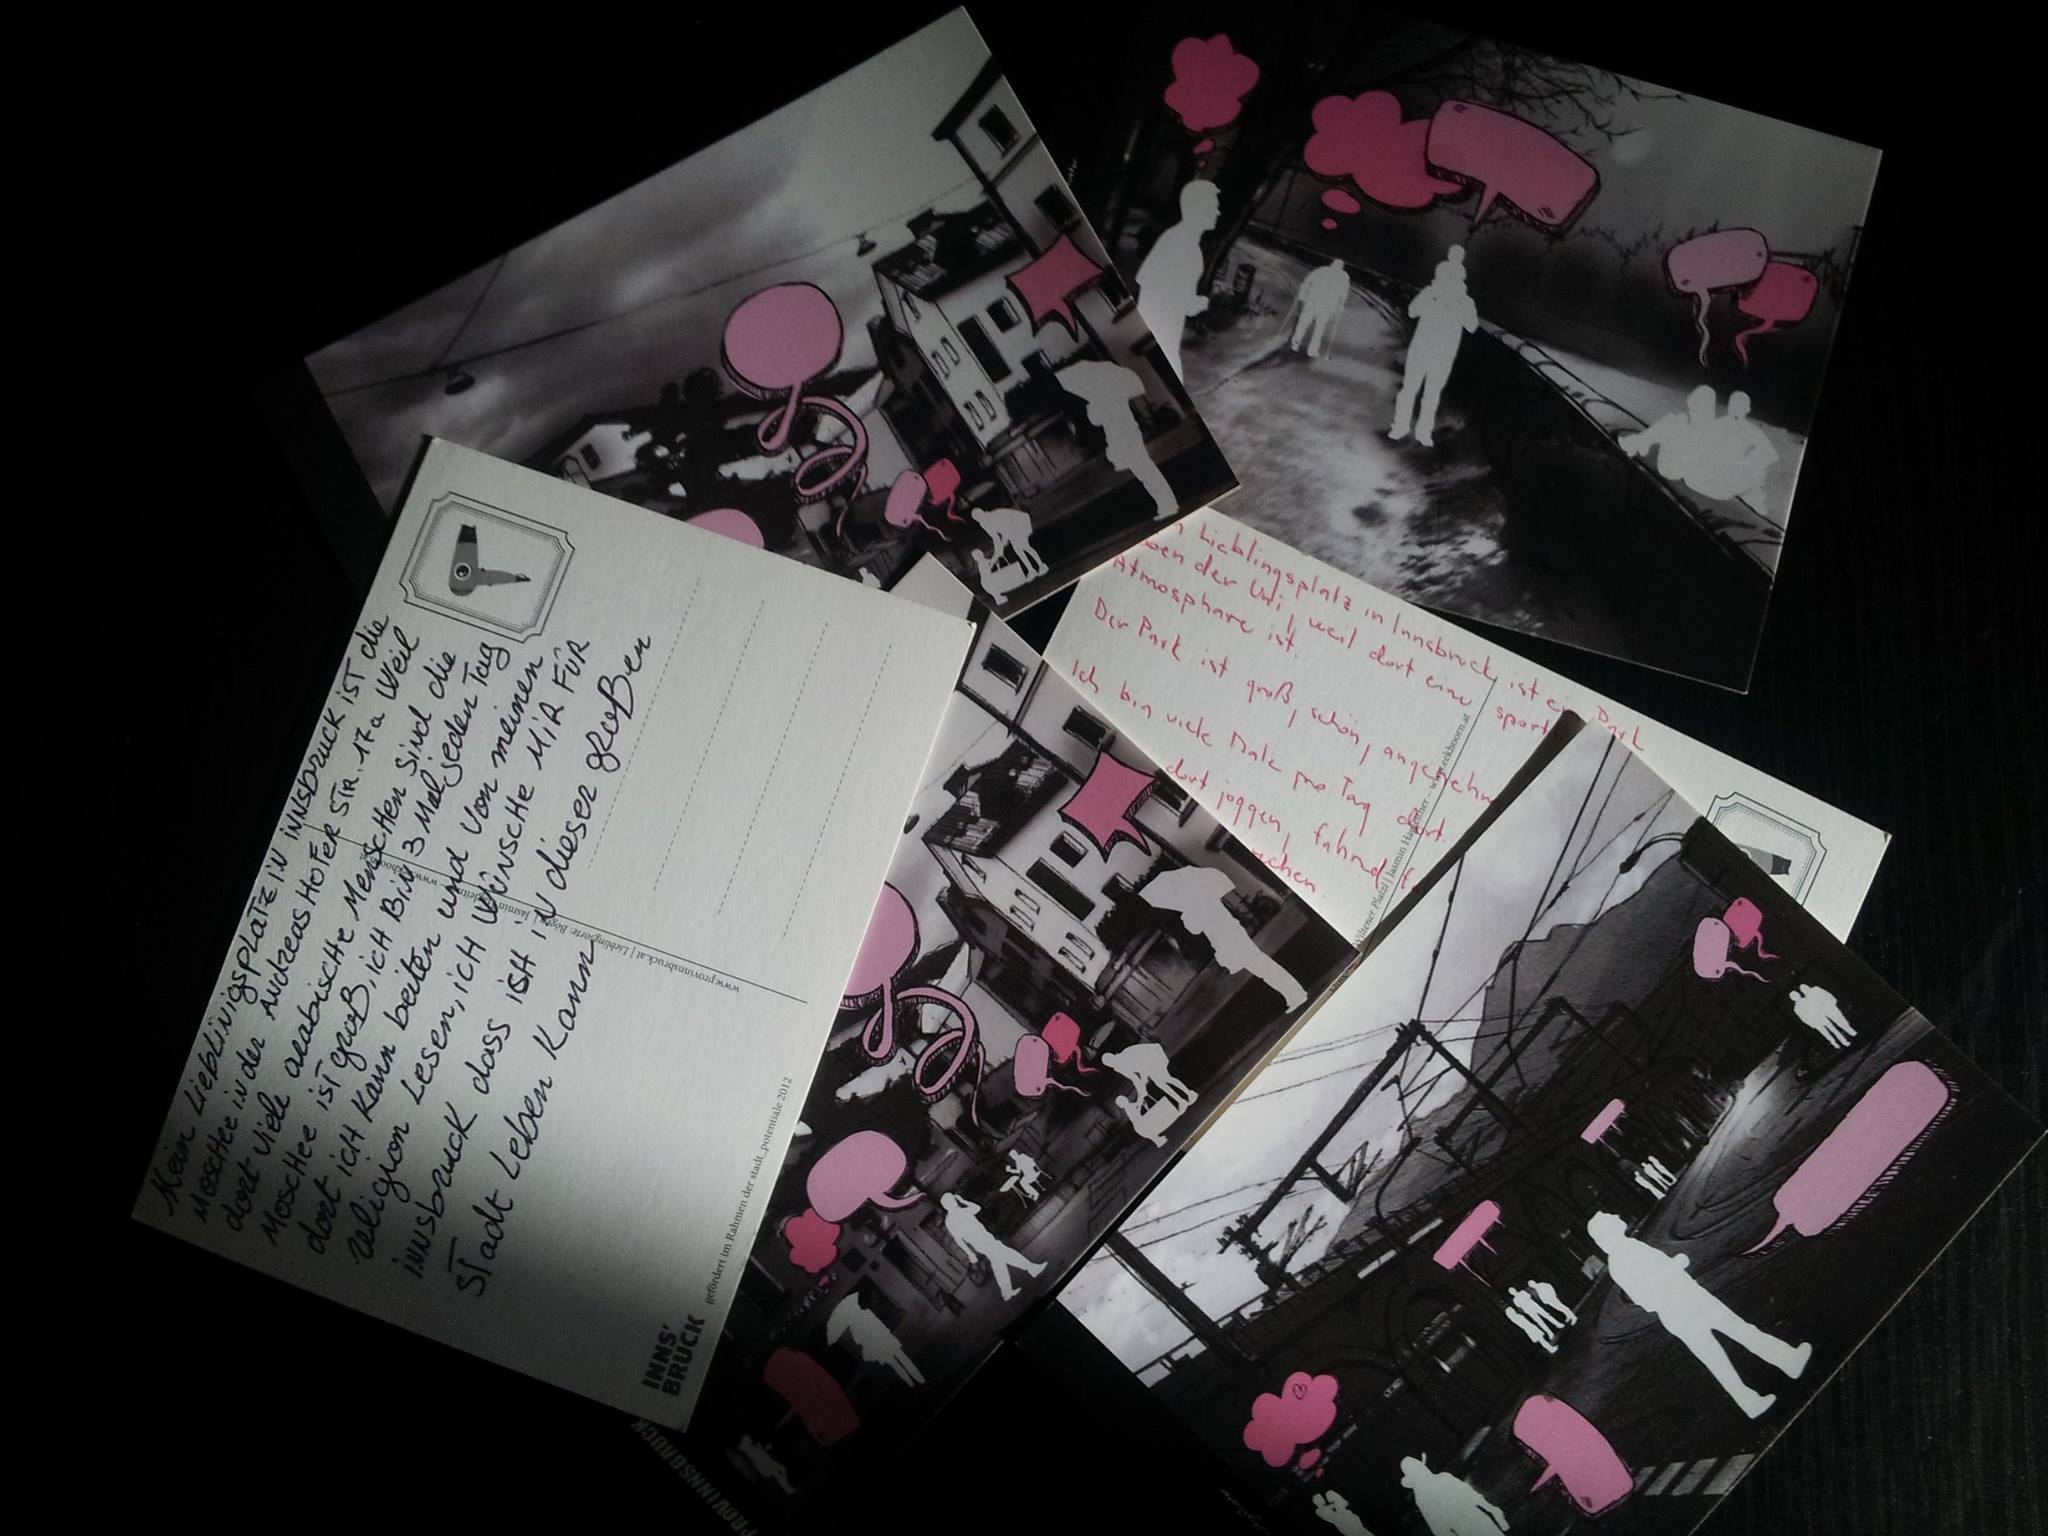 Mein Lieblinigsplatz in innsbruck ist die
Moschee in der Andreas Hofer Str. 17a Weil
dort viele arabische Menschen sind die
Moschee ist groß, ich Bin 3 Mal jeden Tag
dort ich kann beiten und von meinen
religion Lesen, ich Wünsche Mir FÜR
innsbruck dass ich in dieser großen
Stadt Leben Kann
www.provinnsbruck.at | Lieblingsorte
gefördert im Rahmen der stadt_potentiale 2012
INNS'
BRUCK
PROVINNSBRUCK
Lieblingsplatz in Innsbruck ist ein Park
neben der Uni, weil dort eine sport
Atmosphäre ist.
Der Park ist groß, schön, angenehm
Ich bin viele Male pro Tag dort.
dort joggen, fahrad f
machen
Wiltener Platzl | Jasmin - www.eekhoorn.at